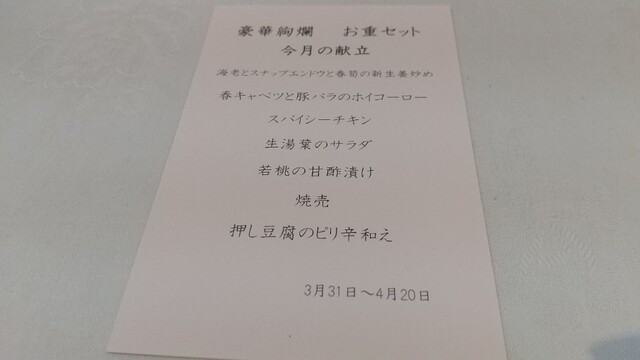 豪華絢爛　お重セット
今月の献立
海老とスナップエンドウと春筍の新生姜炒め
春キャベツと豚バラのホイコーロー
スパイシーチキン
生湯葉のサラダ
若桃の甘酢漬け
焼売
押し豆腐のピリ辛和え
3月31日～4月20日